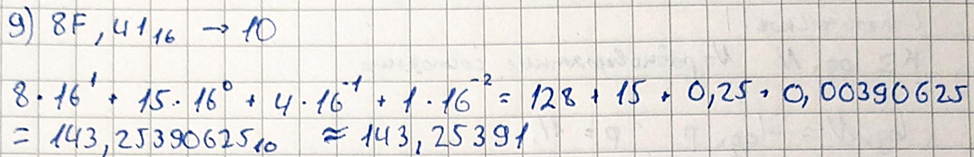 9) 8F,41₁₆ → 10
8·16¹ + 15·16⁰ + 4·16⁻¹ + 1·16⁻² = 128 + 15 + 0,25 + 0,00390625
= 143,25390625₁₀ ≈ 143,25391